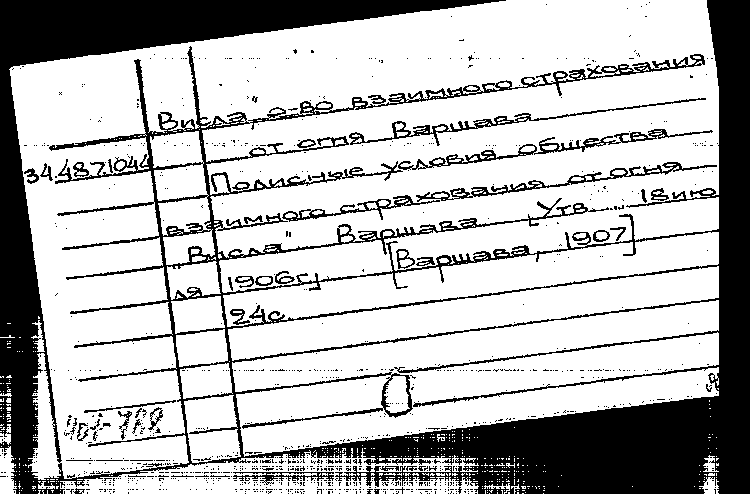 „Висла", о-во взаимного страхования
от огня Варшава
34.48.7.1044
Полисные условия общества
взаимного страхования от огня
„Висла" Варшава [Утв. 18 ию
ля 1906г.] [Варшава, 1907]
24с